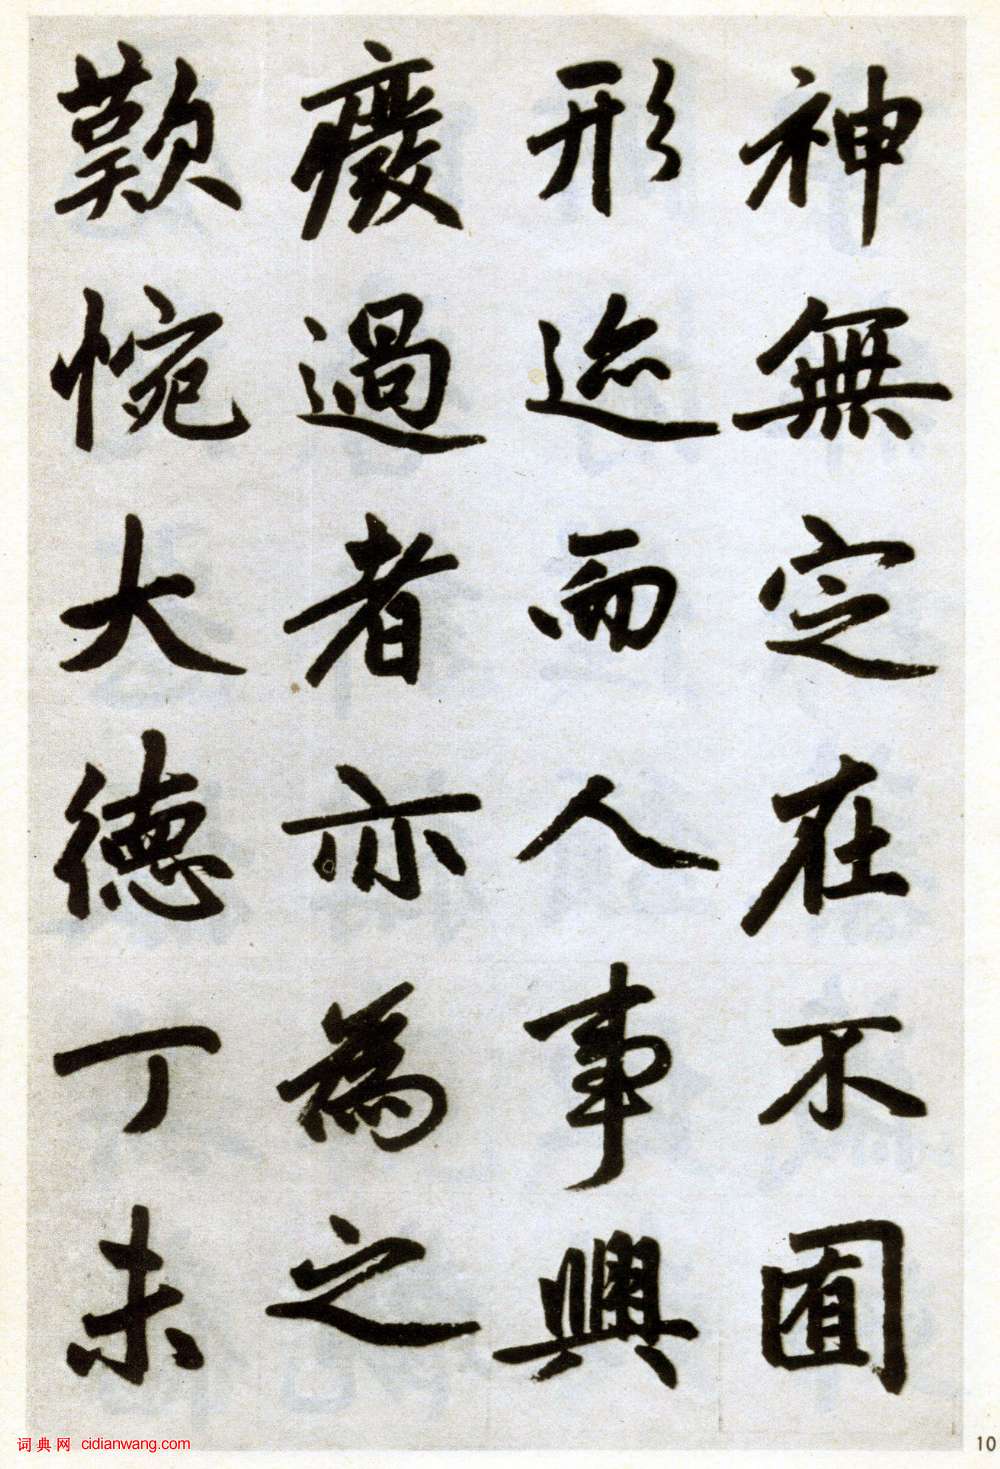 神無定在不囿
形迹而人事興
廢過者亦為之
歎惋大德丁未
词典网 cidianwang.com
10